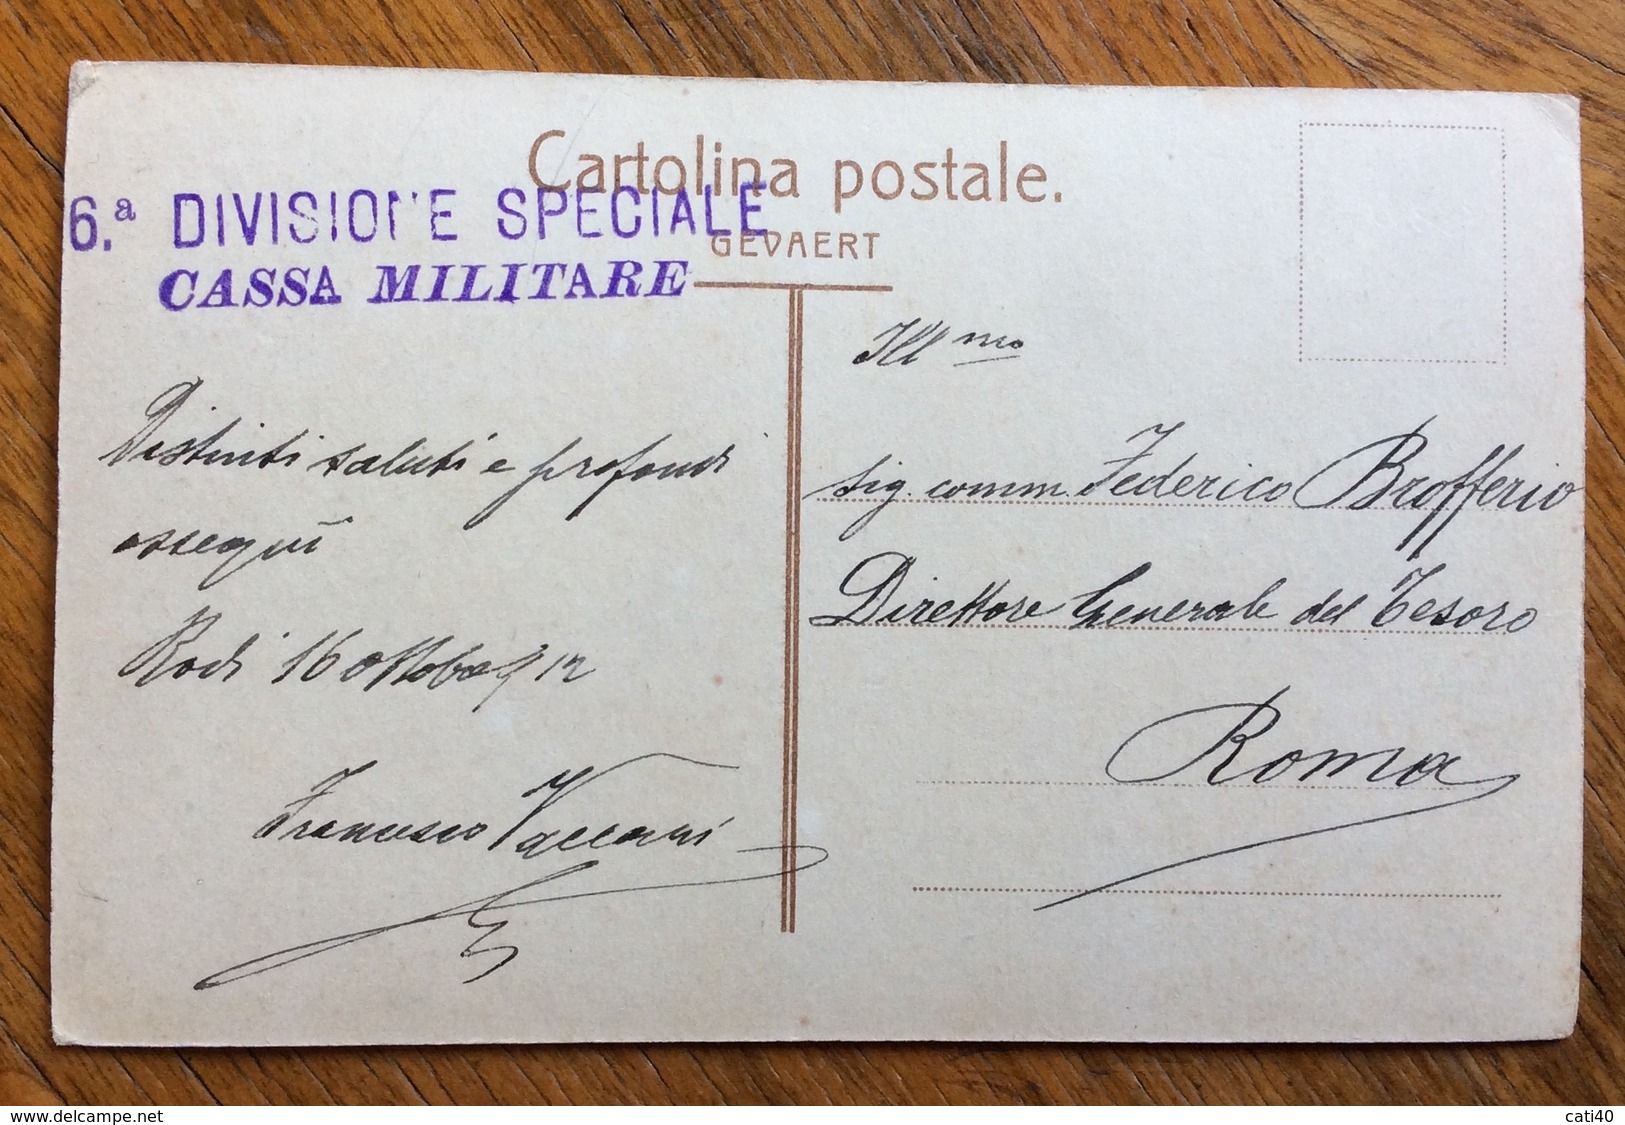 Cartolina postale.
GEVAERT
6.ª DIVISIONE SPECIALE
CASSA MILITARE
Distinti saluti e profondi
ossequi
Rodi 16 ottobre 912
Francesco Vaccari
Ill mo
sig. comm. Federico Brofferio
Direttore Generale del Tesoro
Roma
cati40